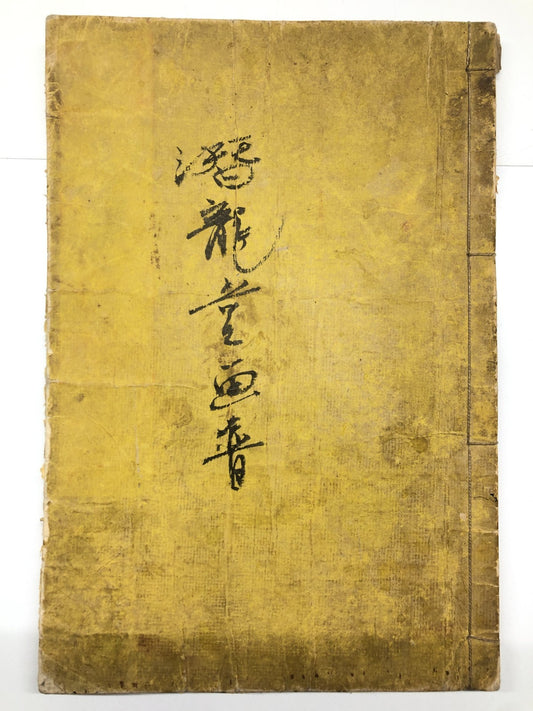 潛龍堂画譜